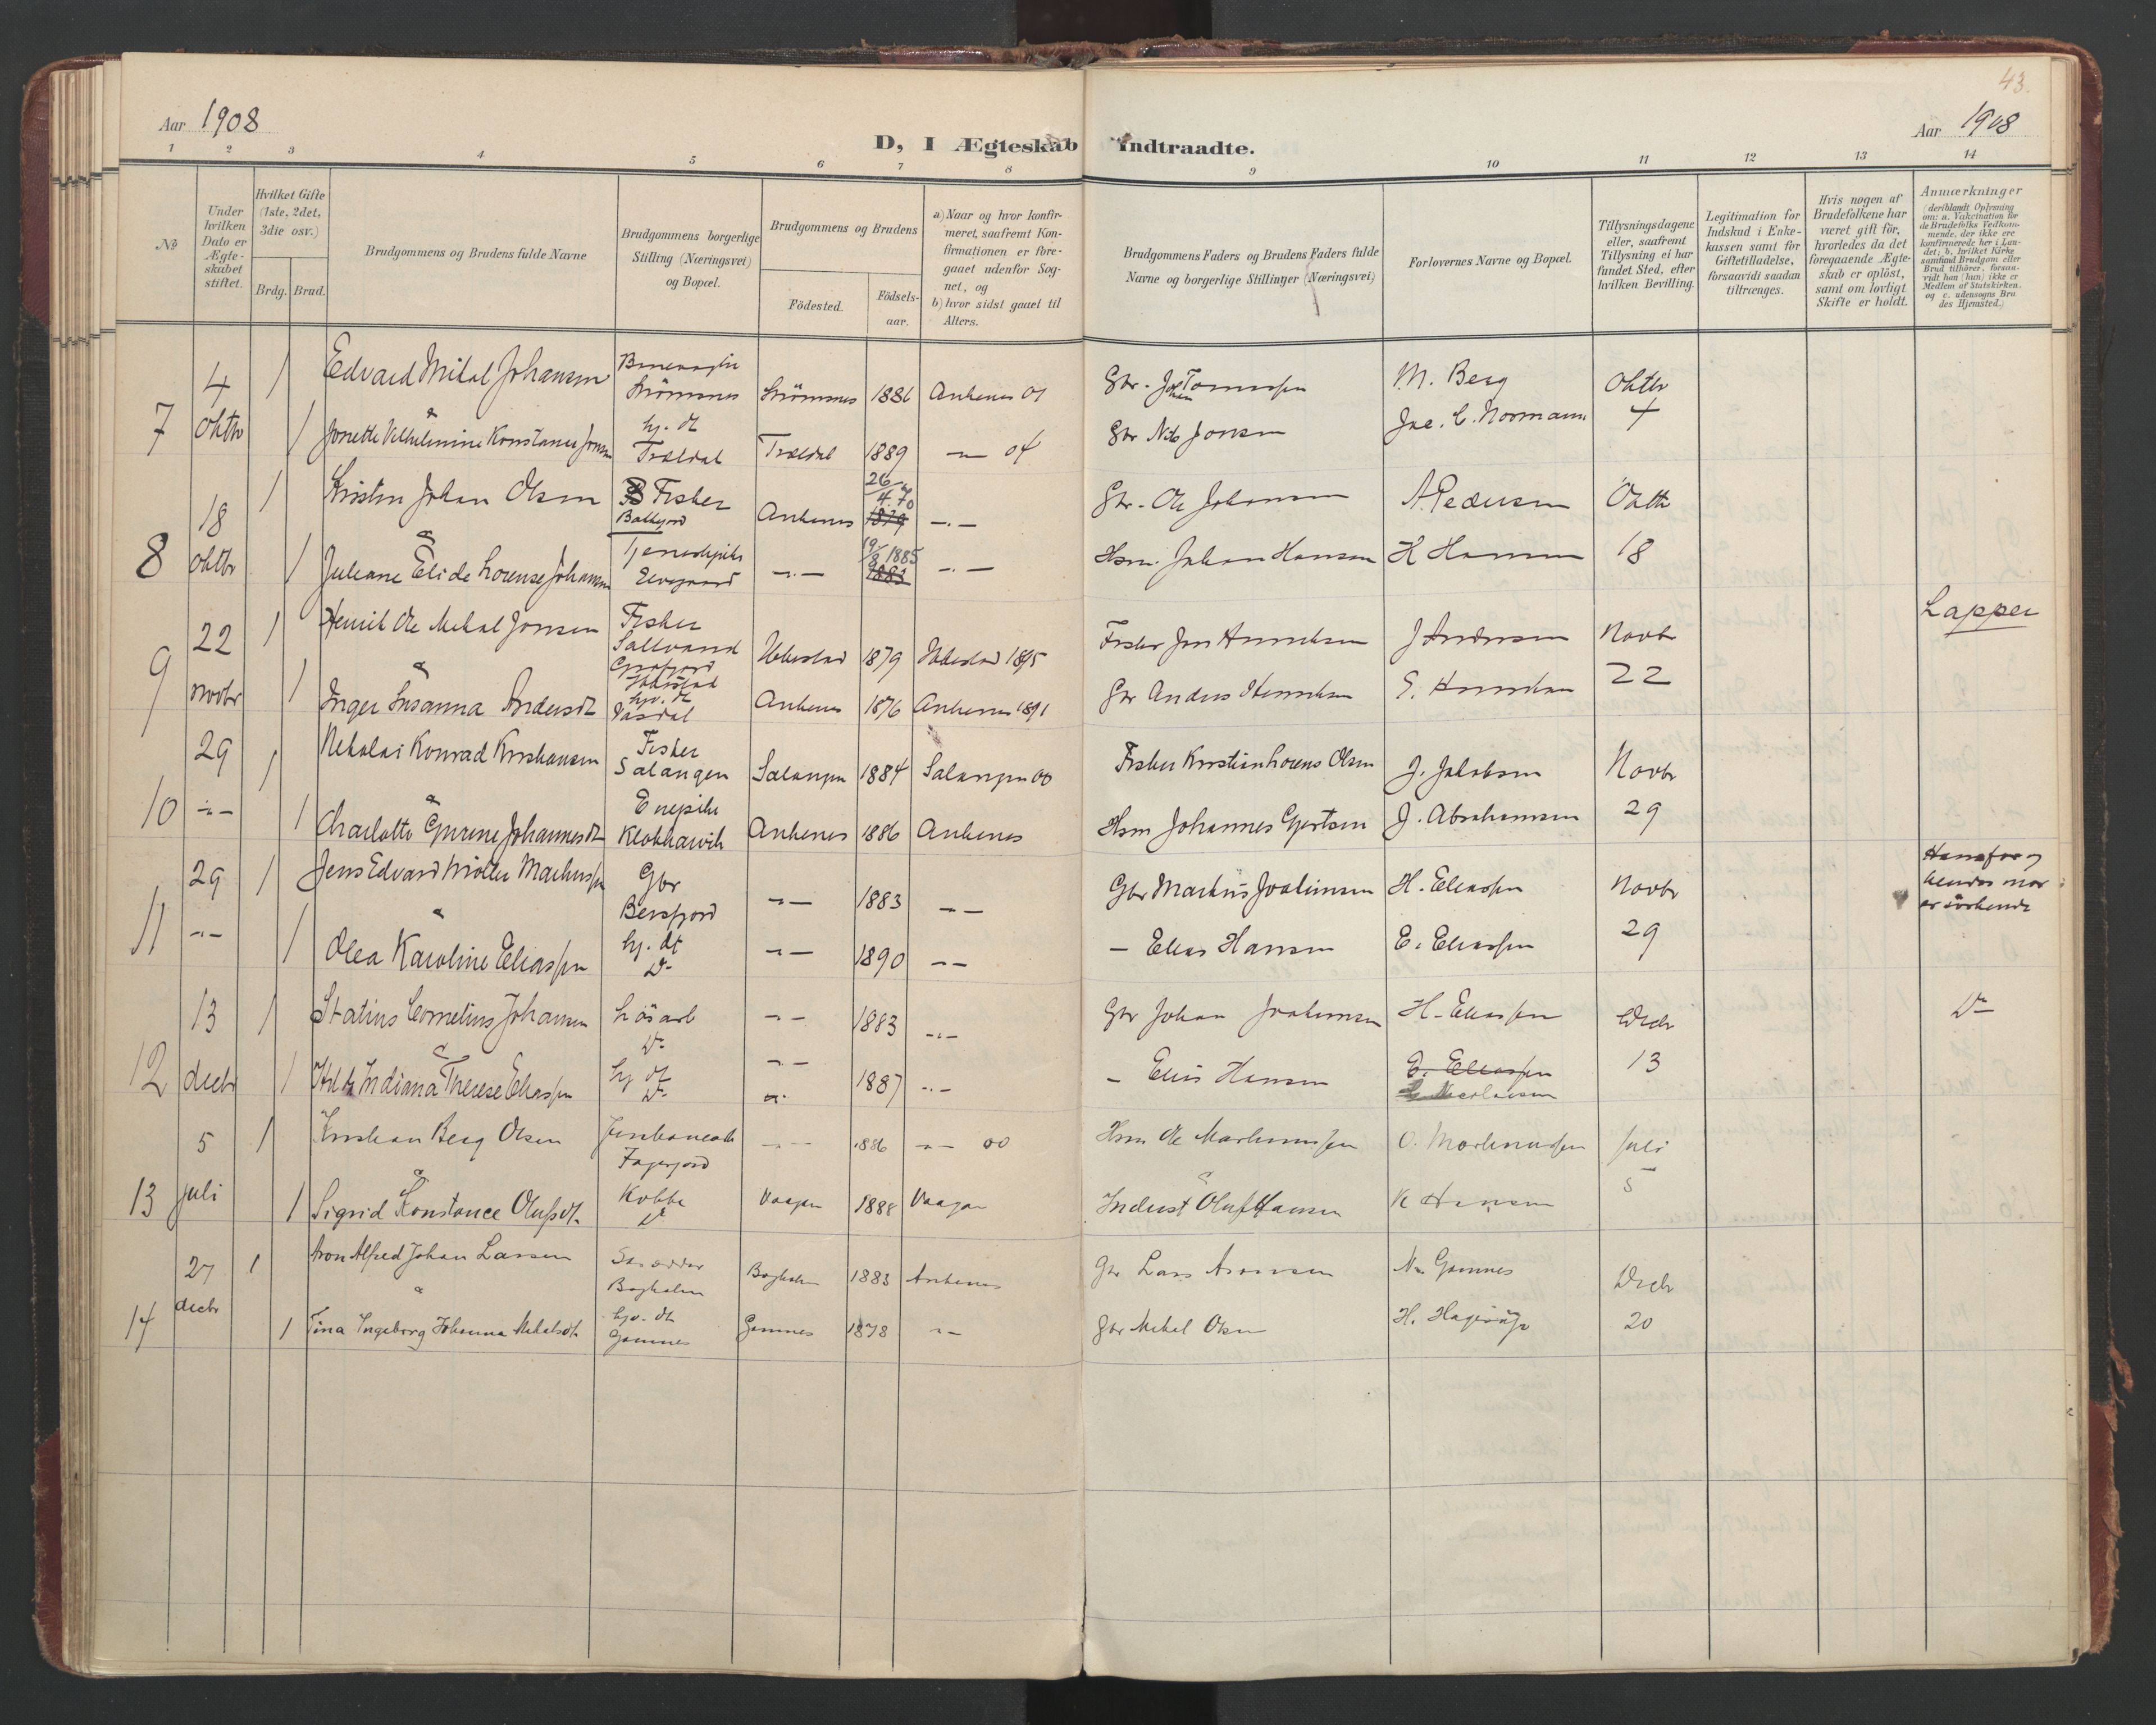 Aar 1908
D, I Ægteskab Indtraadte.
43.
Aar 1908
1 2 3 4 5 6 7 8 9 10 11 12 13 14
No
Under hvilken Dato er Ægte-skabet stiftet.
Hvilket Gifte (1ste, 2det, 3die osv.)
Brdg. Brud.
Brudgommens og Brudens fulde Navne
Brudgommens borgerlige Stilling (Næringsvei) og Bopæl.
Brudgommens og Brudens
Födested.
Födsels-aar.
a) Naar og hvor konfir-meret, saafremt Kon-firmationen er fore-gaaet udenfor Sog-net, og
b) hvor sidst gaaet til Alters.
Brudgommens Faders og Brudens Faders fulde Navne og borgerlige Stillinger (Næringsvei)
Forlovernes Navne og Bopæl.
Tillysningsdagene eller, saafremt Tillysning ei har fundet Sted, efter hvilken Bevilling.
Legitimation for Indskud i Enke-kassen samt for Giftetilladelse, forsaavidt saadan tiltrænges.
Hvis nogen af Brudefolkene har været gift för, hvorledes da det foregaaende Ægte-skab er oplöst, samt om lovligt Skifte er holdt.
Anmærkninger (deriblandt Oplysning om: a. Vakcination for de Brudefolks Vedkom-mende, der ikke ere konfirmerede her i Lan-det; b. hvilket Kirke-samfund Brudgom eller Brud tilhörer, forsaa-vidt han (hun) ikke er Medlem af Statskirken. og c. udensogns Bru-des Hjemsted.)
7 4 oktbr 1 Edvard Mikal Johansen Strömsnes Strömsnes 1886 Ankenes 01 M. Berg Oktbr 4
& 1 Jonette Vilhelmine Konstance hj. dt Trældal Trældal 1889 -"- 04 Gbr Nils Jonsen Jac. C. Normann
8 18 oktbr 1 Kristen Johan Olsen Fisker Ankenes 26-4.70 1879 -"- Gbr. Ole Johansen A. Pedersen Oktb 18
& 1 Juliane Elide Lorense Johansen Tjenestepike -"- 1885 1883 -"- Hsm. Johan Hansen K Hansen
9 22 novbr 1 Henrik Ole Mikal Jonsen Fisker Ibbestad 1879 Ibbestad 1895 Fisker Jon Henriksen J Andersen Novbr 22 Lapper
& 1 Inger Susanna Andersdt hj. dt Ankenes 1876 Ankenes 1891 Gbr Anders Henriksen
10 29 1 Nikolai Konrad Kristiansen Fisker Salangen Salangen 1884 Salangen 00 Fisker Kristian Lorens Olsen J. Jakobsen Novbr 29
-"- & 1 Charlotte Gurine Johannesdt Enepike Ankenes 1886 Ankenes Hsm Johannes Gjertsen J. Abrahamsen
11 29 1 Jens Edvard Möller Gbr -"- 1883 -"- Gbr Markus Joakimsen H. Eliassen Novbr 29
-"- & 1 Olea Karoline Eliassen hj. dt Do -"- 1890 -"- - Elias Hansen E. Eliassen
12 13 decbr 1 Statius Cornelius Johansen Lösarb Do -"- 1883 -"- Gbr Johan Joakimsen H. Eliassen Decbr 13 Do
& 1 Indiana Therese Eliassen hj dt Do -"- 1887 -"- - Elias Hansen E. Eliassen
13 5 juli 1 Kristian Berg Olsen Fagerjord -"- 1886 -"- 00 Hsm Ole O. Martinussen Juli 5
& 1 Sigrid Konstance Olufsdt. Vaagan 1888 Vaagan Indust Oluf Hansen K Hansen
14 27 decbr 1 Aron Alfred Johan Larsen 1883 Ankenes Gbr Lars Aronsen Decbr 20
& 1 Tina Ingeborg Johanna Mikalsdt. hj. dt 1878 -"- Gbr Mikal Olsen